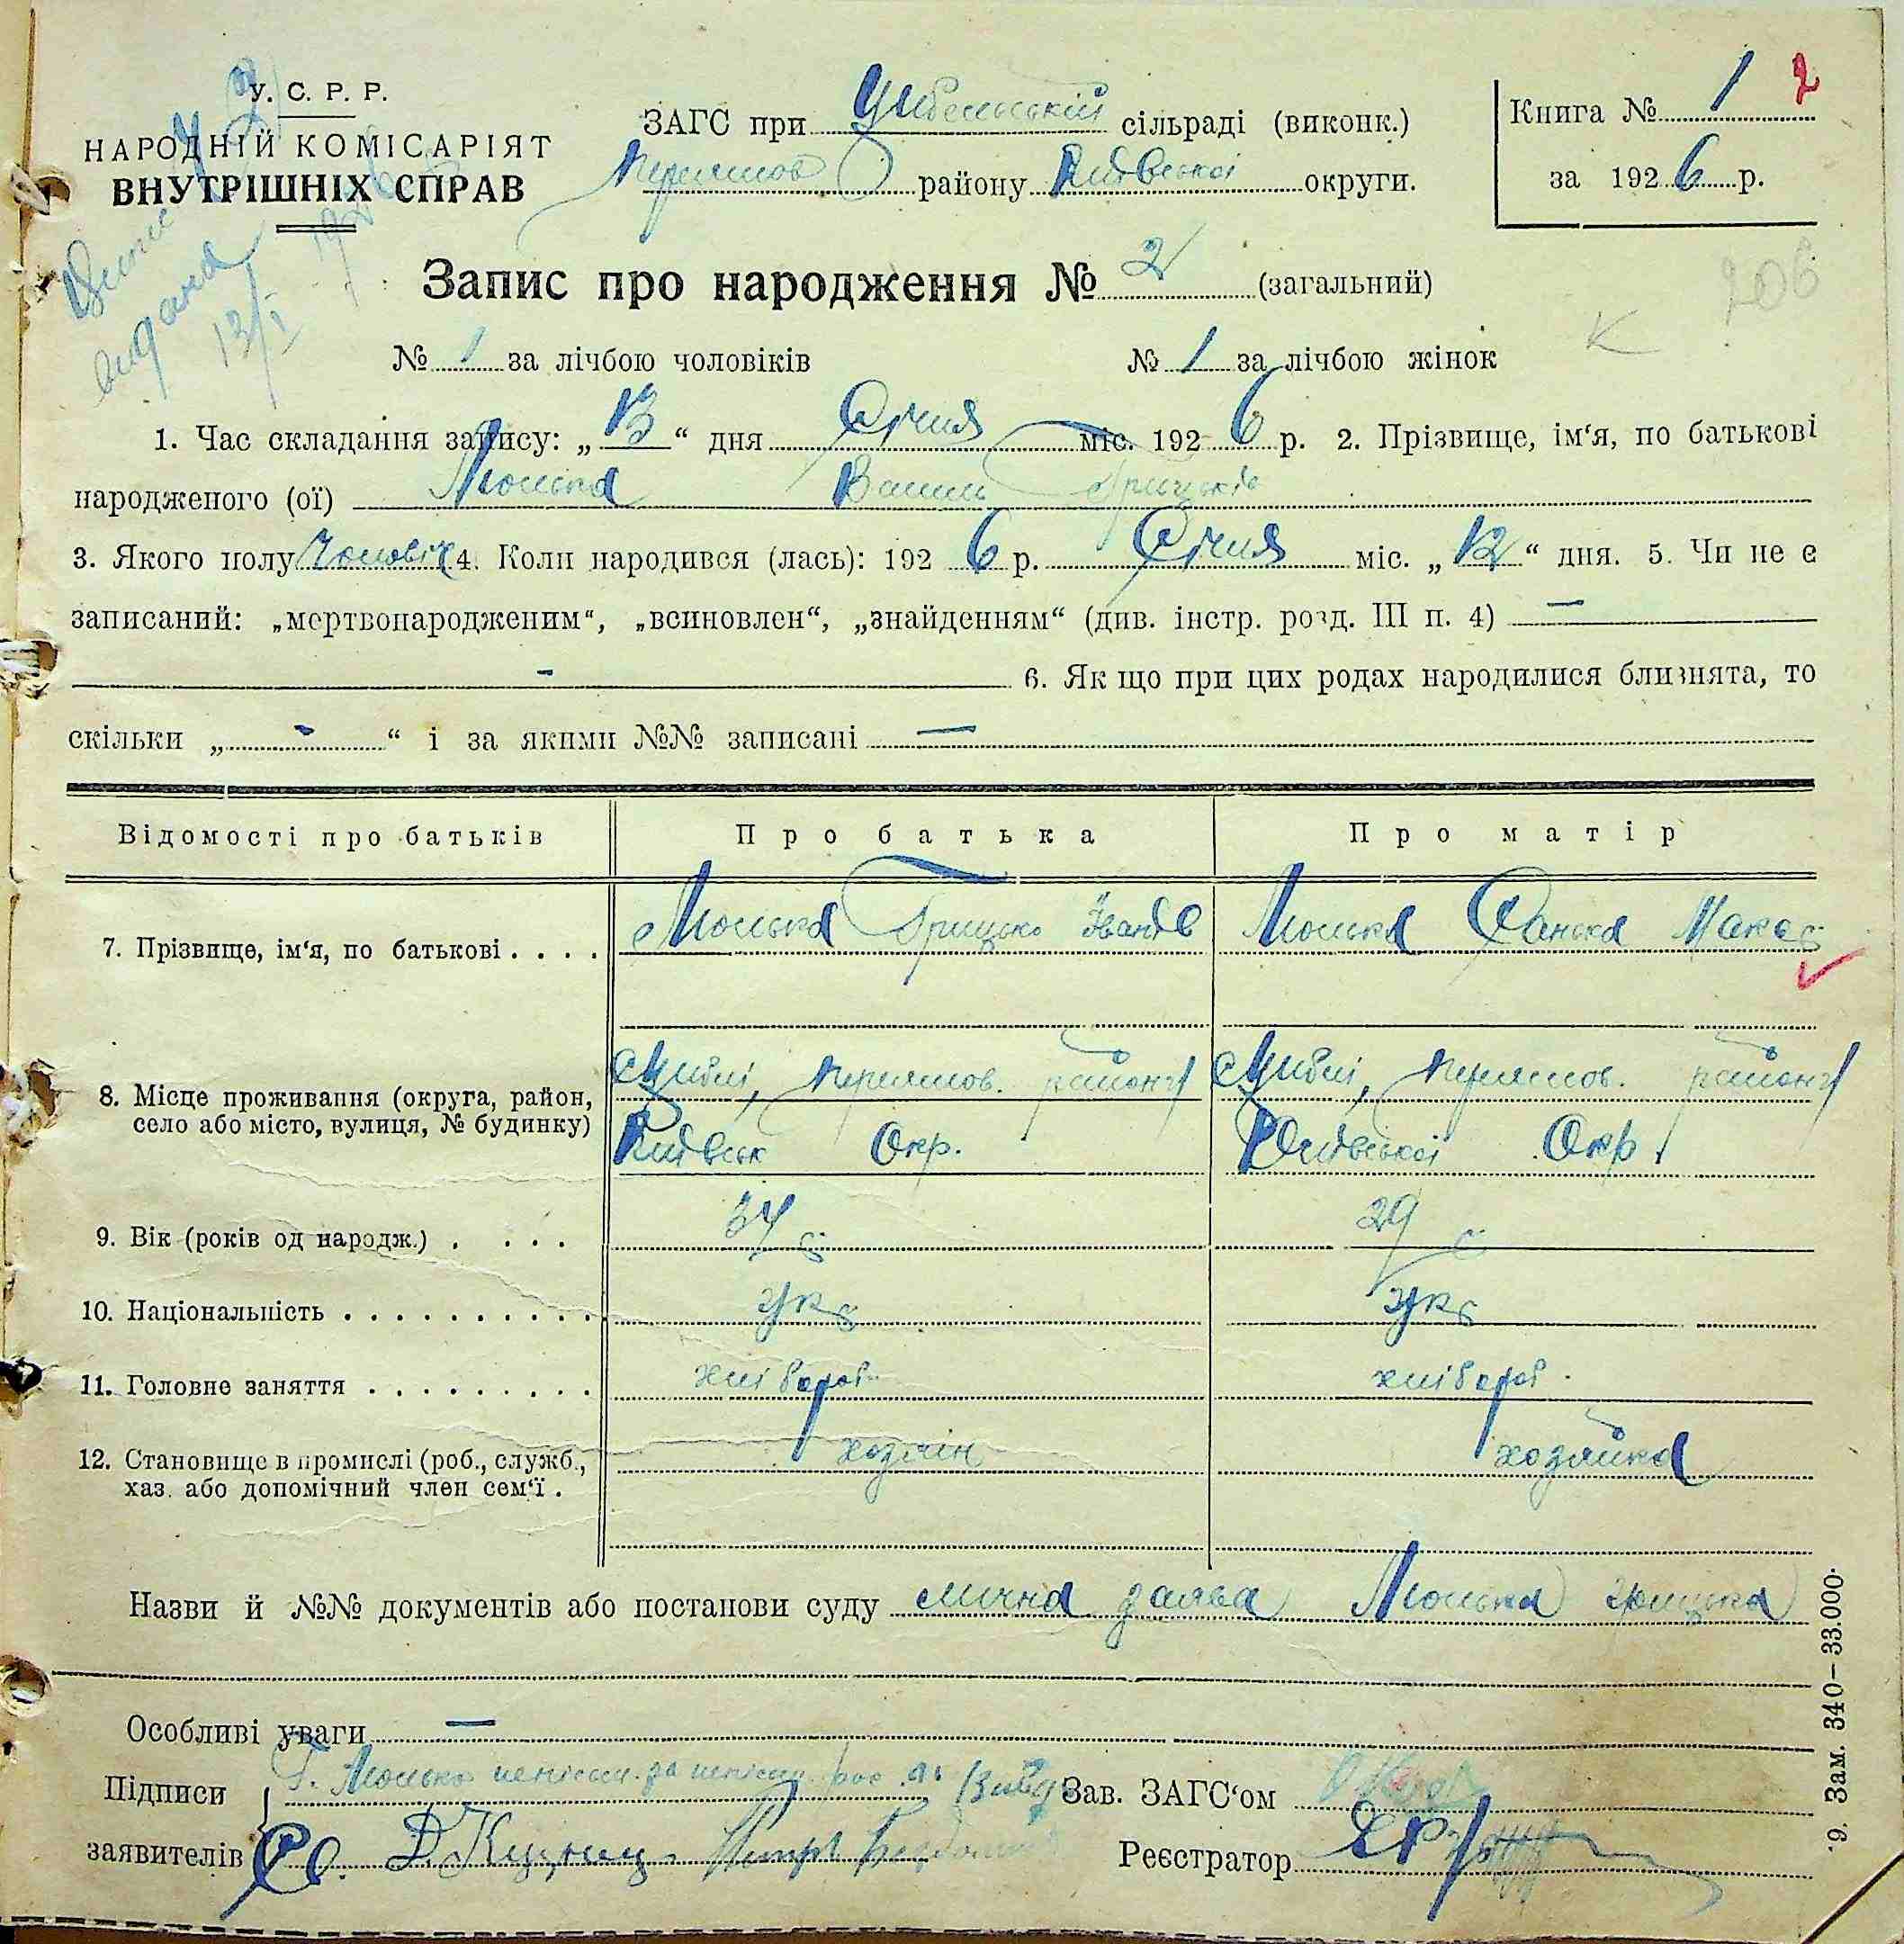 У. С. Р. Р.
НАРОДНІЙ КОМІСАРІЯТ
ВНУТРІШНІХ СПРАВ
ЗАГС при Цибельській сільраді (виконк.)
Переяслов району Київської округи.
Книга № 1 2
за 1926 р.
видана
13/I
Запис про народження № 2 (загальний)
206
К
№ 1 за лічбою чоловіків № 1 за лічбою жінок
1. Час складання запису: „13“ дня Січня міс. 1926 р. 2. Прізвище, ім‘я, по батькові
народженого (ої) Люлька Василь Грицьків
3. Якого полу Чоловіч 4. Коли народився (лась): 1926 р. Січня міс. „12“ дня. 5. Чи не є
записаний: „мертвонародженим“, „всиновлен“, „знайденням“ (див. інстр. розд. III п. 4) —
- 6. Як що при цих родах народилися близнята, то
скільки „ - “ і за якими №№ записані —
Відомості про батьків Про батька Про матір
7. Прізвище, ім‘я, по батькові . . . . Люлька Грицько Іванів Люлька Ганька
8. Місце проживання (округа, район, село або місто, вулиця, № будинку) с. Циблі, Переяслов. району с. Циблі, Переяслов. району
Київськ Окр. Київської Окр.
9. Вік (років од народж.) . . . . 34 29
10. Національність . . . . . . . . . . . укр укр
11. Головне заняття . . . . . . . . . . хлібороб хлібороб.
12. Становище в промислі (роб., служб., хаз. або допомічний член сем‘ї . хозяїн хозяйка
Назви й №№ документів або постанови суду слична заява Люлька Грицька
Особливі уваги —
Підписи Г. Люлька неписьм. за неписьм. рос. Зав. ЗАГС‘ом
заявителів Д. Куцу Петро Реєстратор
9. Зам. 340—33.000.